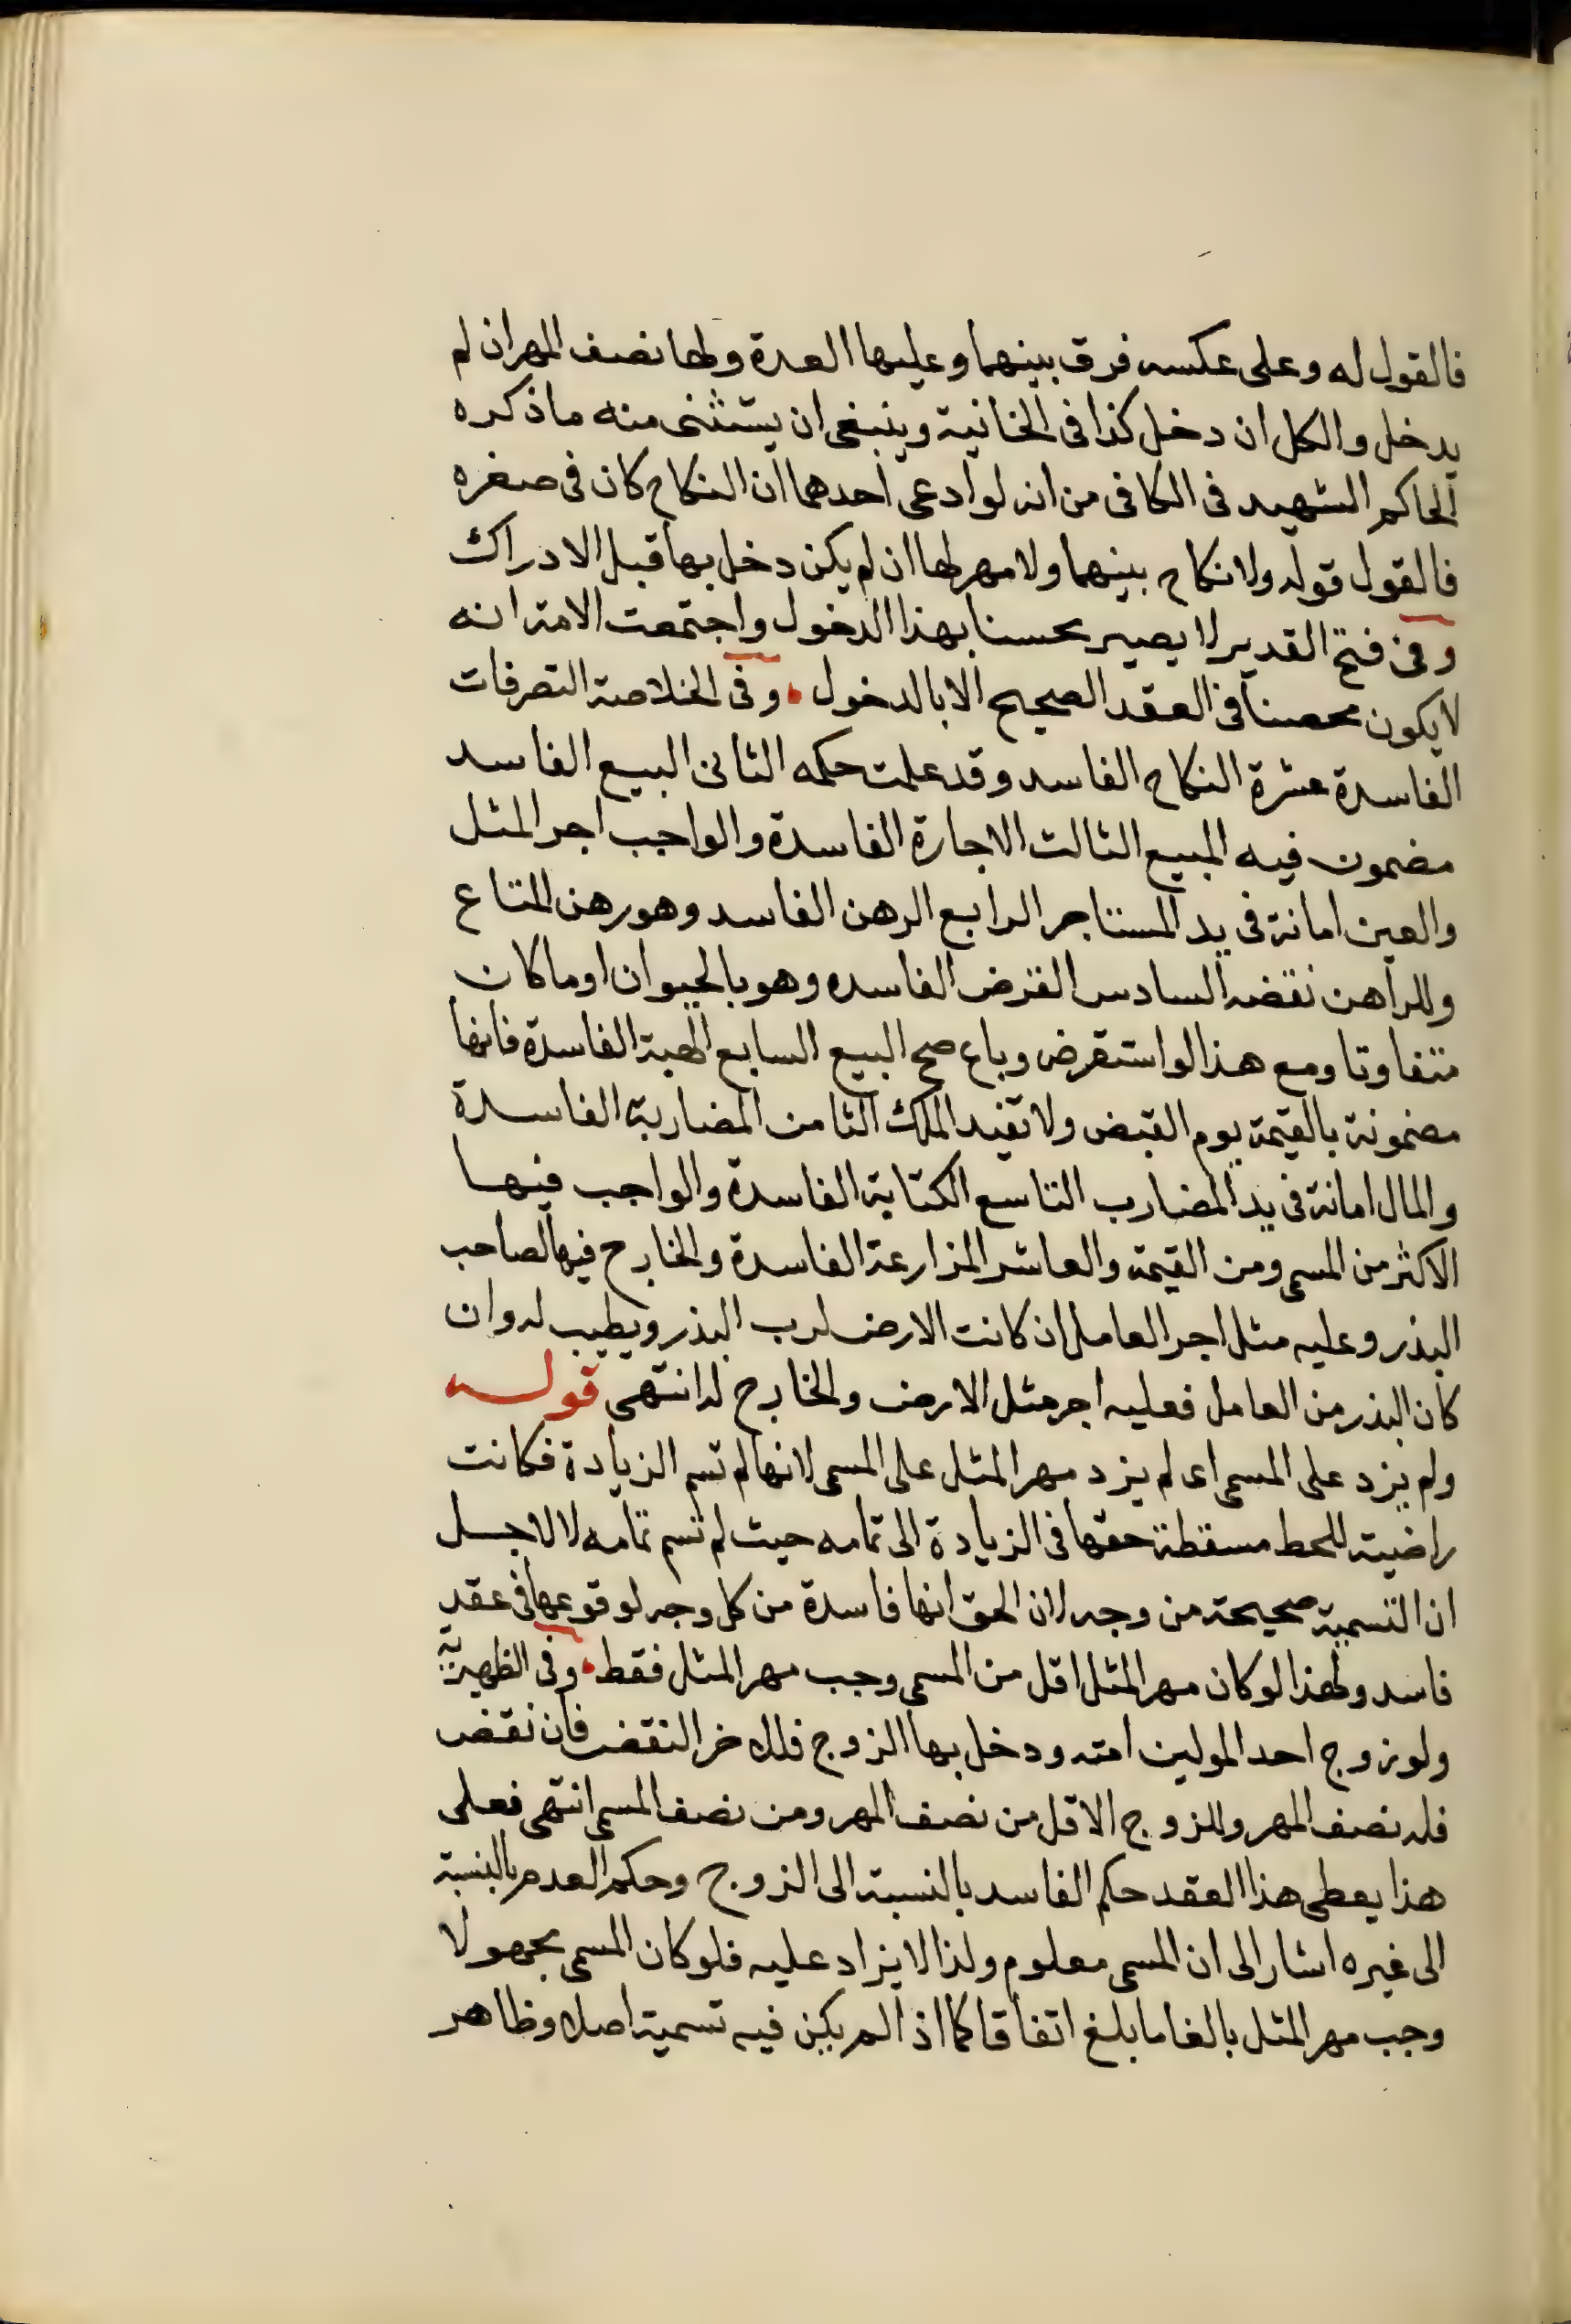 فالقول له وعلى عكسه فرق بينهما وعليها العدة ولها نصف المهر ان لم
يدخل والكل ان دخل كذا فى الخانية وينبغى ان يستثنى منه ما ذكره
الحاكم الشهيد فى الكافى من انه لو ادعى احدهما ان النكاح كان فى صغره
فالقول قوله ولا نكاح بينهما ولا مهر لها ان لم يكن دخل بها قبل الادراك
وفى فتح القدير لا يصير محسنا بهذا الدخول واجتمعت الامة انه
لا يكون محصنا فى العقد الصحيح الا بالدخول وفى الخلاصة التصرفات
الفاسدة عشرة النكاح الفاسد وقد علمت حكمه الثانى البيع الفاسد
مضمون فيه المبيع الثالث الاجارة الفاسدة والواجب اجر المثل
والعين امانة فى يد المستاجر الرابع الرهن الفاسد وهو رهن المتاع
وللراهن نقضه السادس القرض الفاسد وهو بالحيوان او ما كان
متفاوتا ومع هذا لو استقرض وباع صح البيع السابع الهبة الفاسدة فانها
مضمونة بالقيمة يوم القبض ولا تفيد الملك الثامن المضاربة الفاسدة
والمال امانة فى يد المضارب التاسع الكتابة الفاسدة والواجب فيها
الاكثر من المسمى ومن القيمة والعاشر المزارعة الفاسدة والخارج فيها لصاحب
البذر وعليه مثل اجر العامل ان كانت الارض لرب البذر ويطيب له وان
كان البذر من العامل فعليه اجر مثل الارض والخارج له انتهى قوله
ولم يزد على المسمى اى لم يزد مهر المثل على المسمى لانها لم تسم الزيادة فكانت
راضية للحط مسقطة حقها فى الزيادة الى تمامه حيث لم تسم تمامه لا لاجل
ان التسمية صحيحة من وجه لان الحق انها فاسدة من كل وجه لوقوعها فى عقد
فاسد ولهذا لو كان مهر المثل اقل من المسمى وجب مهر المثل فقط وفى الظهيرية
ولو زوج احد الموليين امته ودخل بها الزوج فللاخر النقض فان نقض
فله نصف المهر وللزوج الاقل من نصف المهر ومن نصف المسمى انتهى فعلى
هذا يعطى هذا العقد حكم الفاسد بالنسبة الى الزوج وحكم العدم بالنسبة
الى غيره اشار الى ان المسمى معلوم ولذا لا يزاد عليه فلو كان المسمى مجهولا
وجب مهر المثل بالغا ما بلغ اتفاقا كما اذا لم يكن فيه تسمية اصلا وظاهر